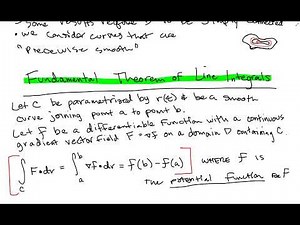 some results require D to be simply connected
• we consider curves that are
"piecewise smooth"
Fundamental Theorem of Line Integrals
Let C be parametrized by r(t) & be a smooth
curve joining point a to point b.
Let f be a differentiable function with a continuous
gradient vector field F = ∇f on a domain D containing C.
∫_C F•dr = ∫_a^b ∇f•dr = f(b) - f(a) where f is
the potential function for F